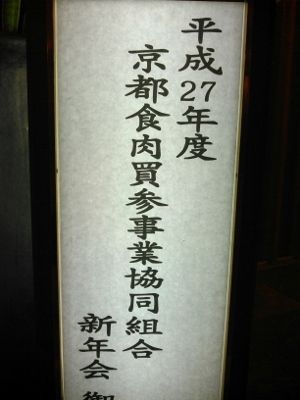 平成27年度
京都食肉買参事業協同組合
新年会 御